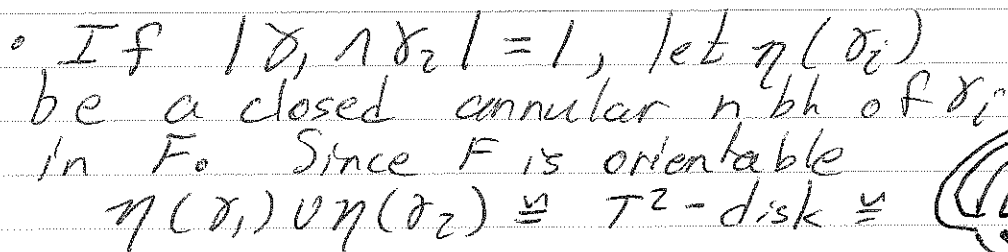 • If |γ₁ ∩ γ₂| = 1, let η(γᵢ)
be a closed annular nbh of γᵢ
in F. Since F is orientable
η(γ₁) ∪ η(γ₂) ≅ T² - disk ≅